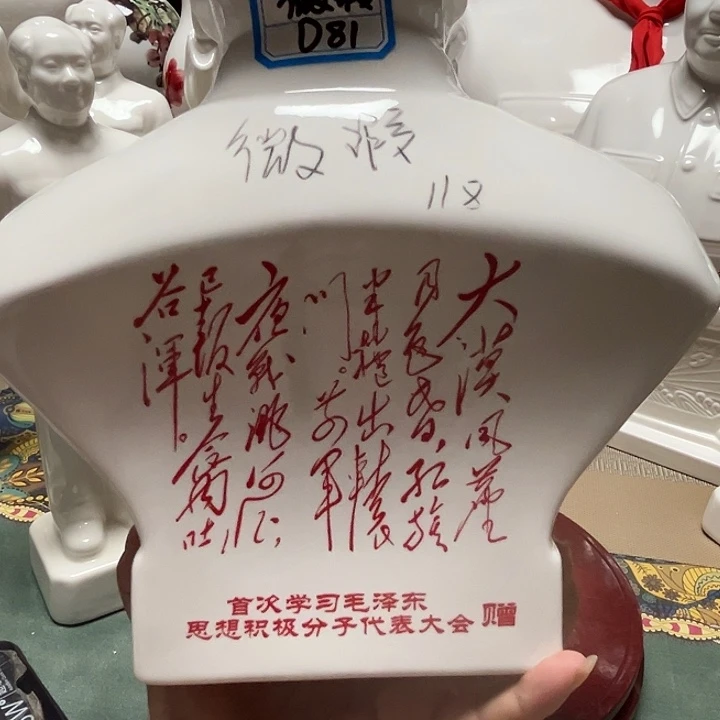 微瑕
D81
微瑕
118
大漠风塵
日色昏,红旗
半捲出轅
门。前軍
夜战洮河北,
已报生擒吐
谷渾。
首次学习毛泽东
思想积极分子代表大会 赠